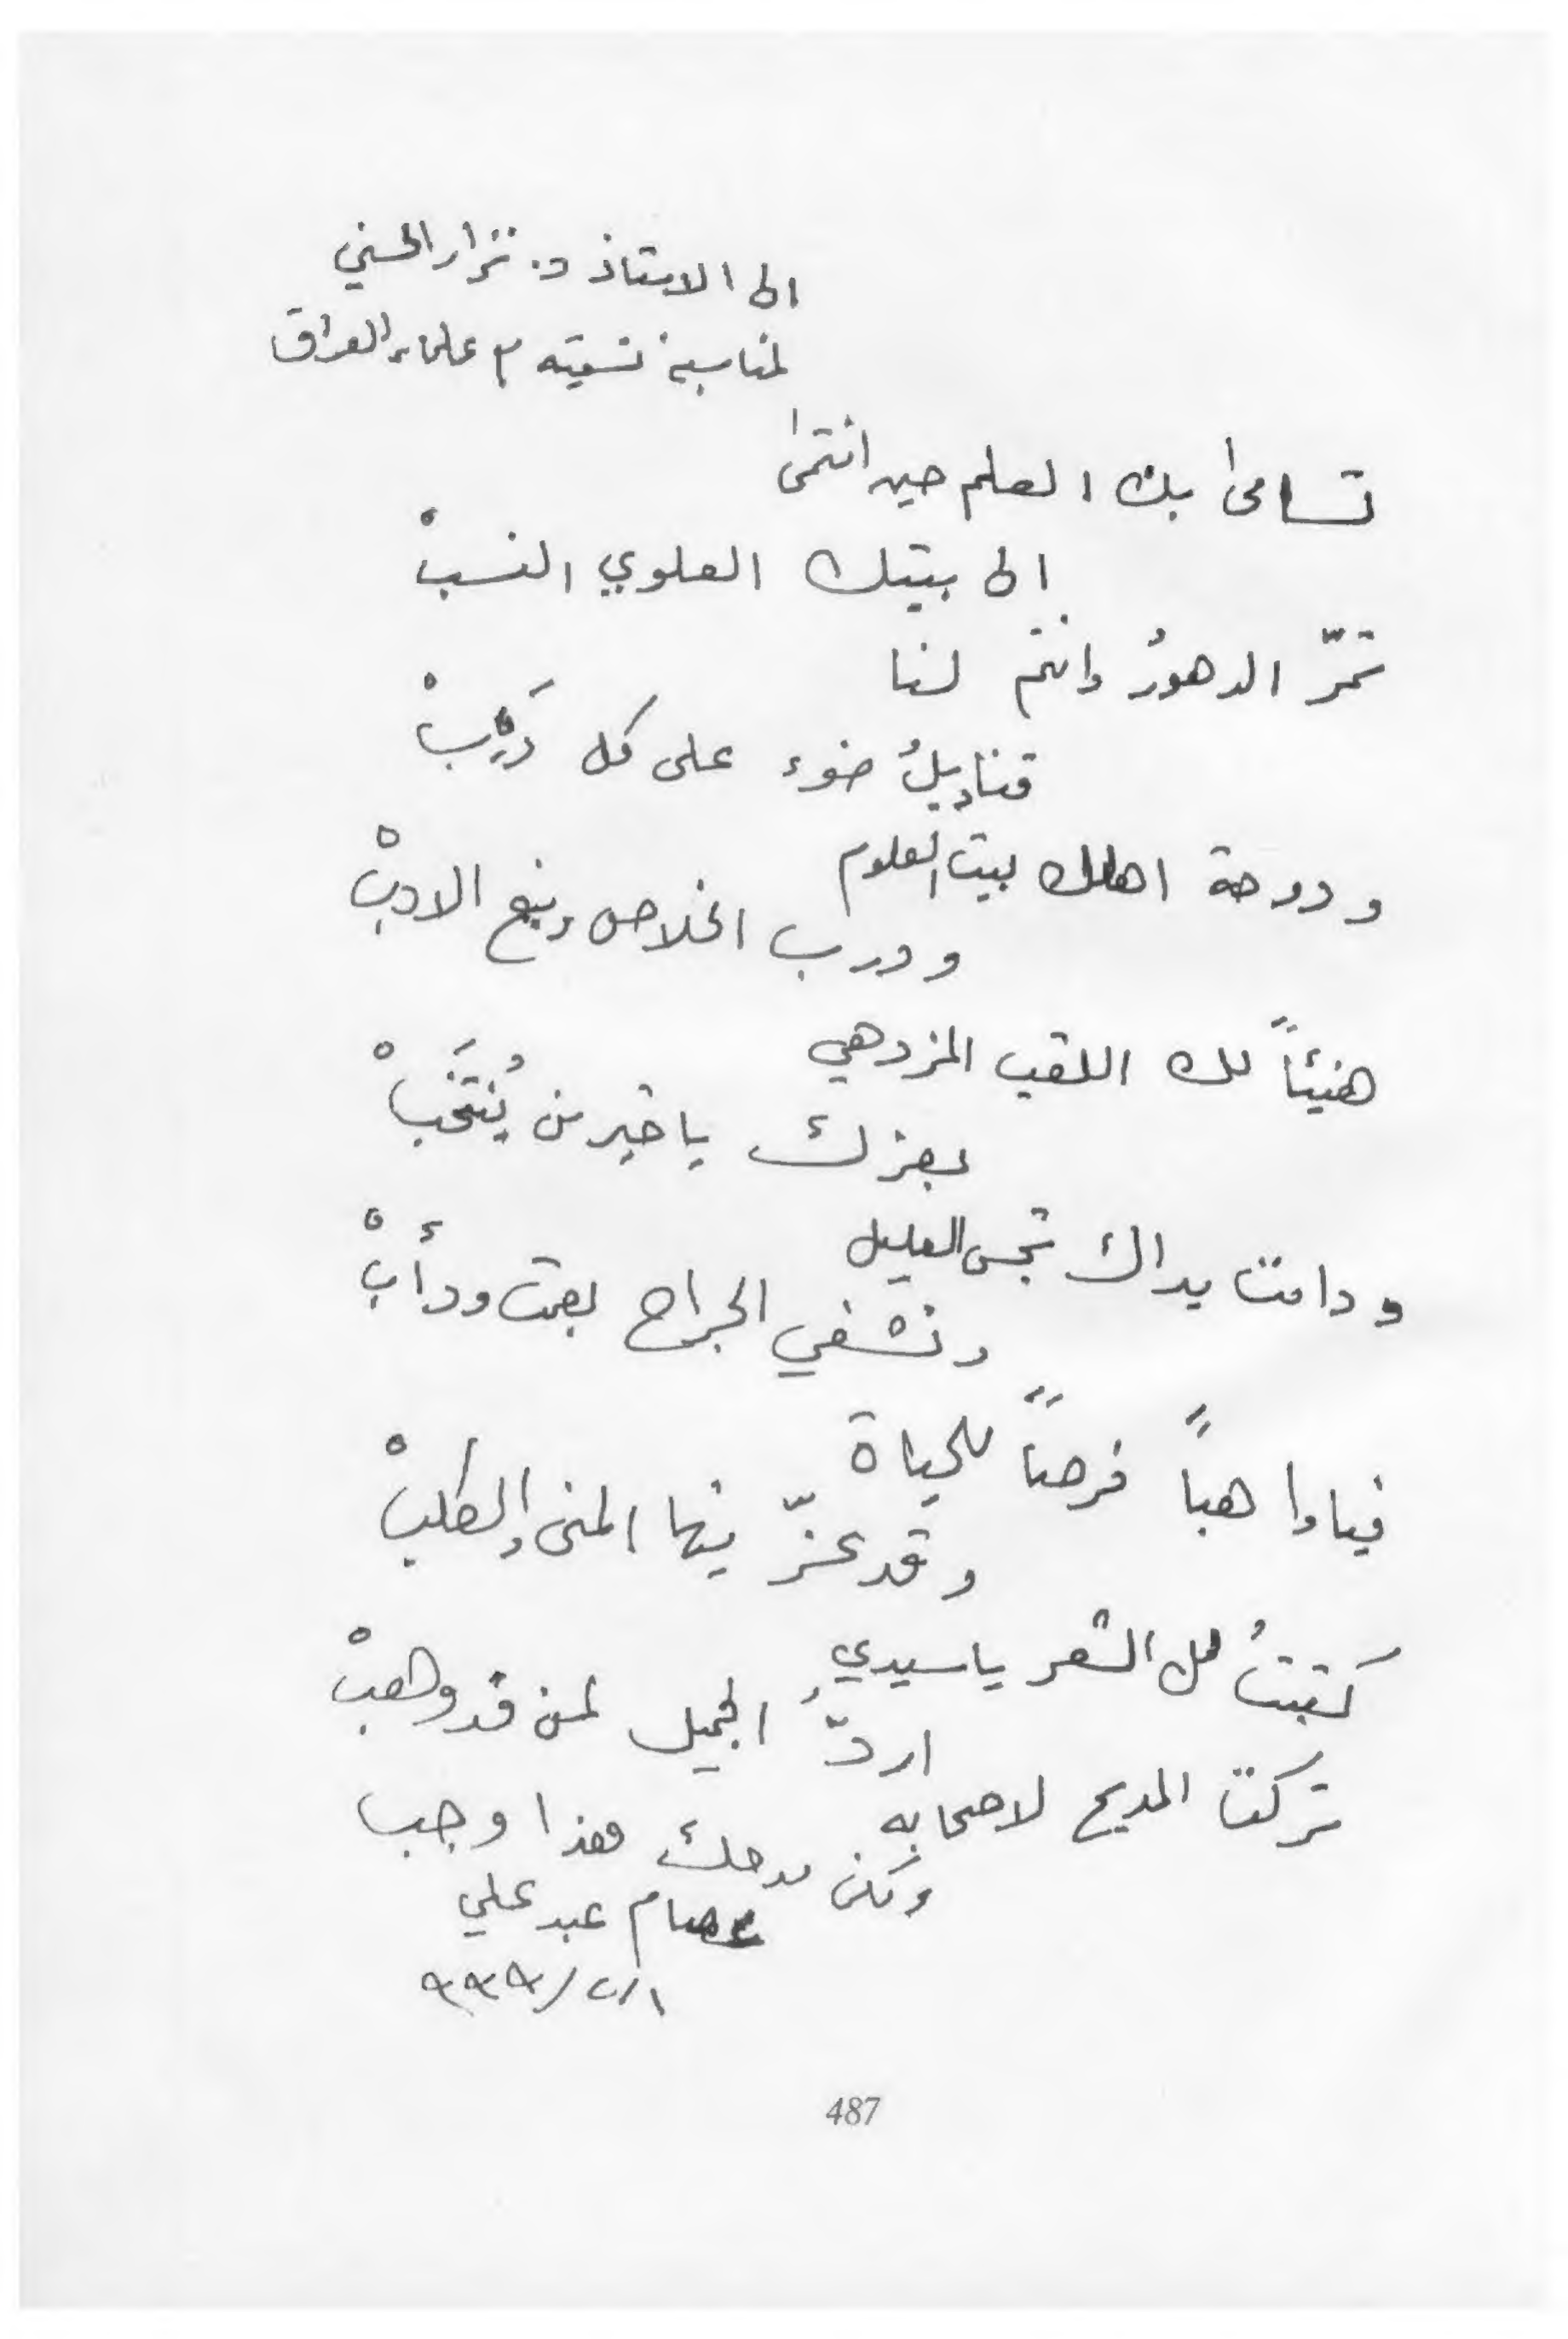 الى الاستاذ د. نزار الحسني
لمناسبة تسميته من علماء العراق
تسامى بك العلم حين انتمى
الى بيتك العلوي النسبْ
تمرّ الدهورُ وانتم لنا
قناديلُ ضوء على كل دَرْبْ
ودوحة اهلك بيت العلوم
ودرب الخلاص ونبع الادبْ
هنيئاً لك اللقب المزدهي
بعزك يا خير من يُنتَخبْ
ودامت يداك تجس العليل
وتشفي الجراح بصمت ودأبْ
فيا واهباً فرصاً للحياة
وقد عزّ فيها المنى والطلبْ
كتبتُ لك الشعر يا سيدي
اردُّ الجميل لمن قد وهبْ
تركت المديح لاصحابه
ولكن مدحك هذا وجب
عصام عبد علي
٩٩٩/٢/١
487